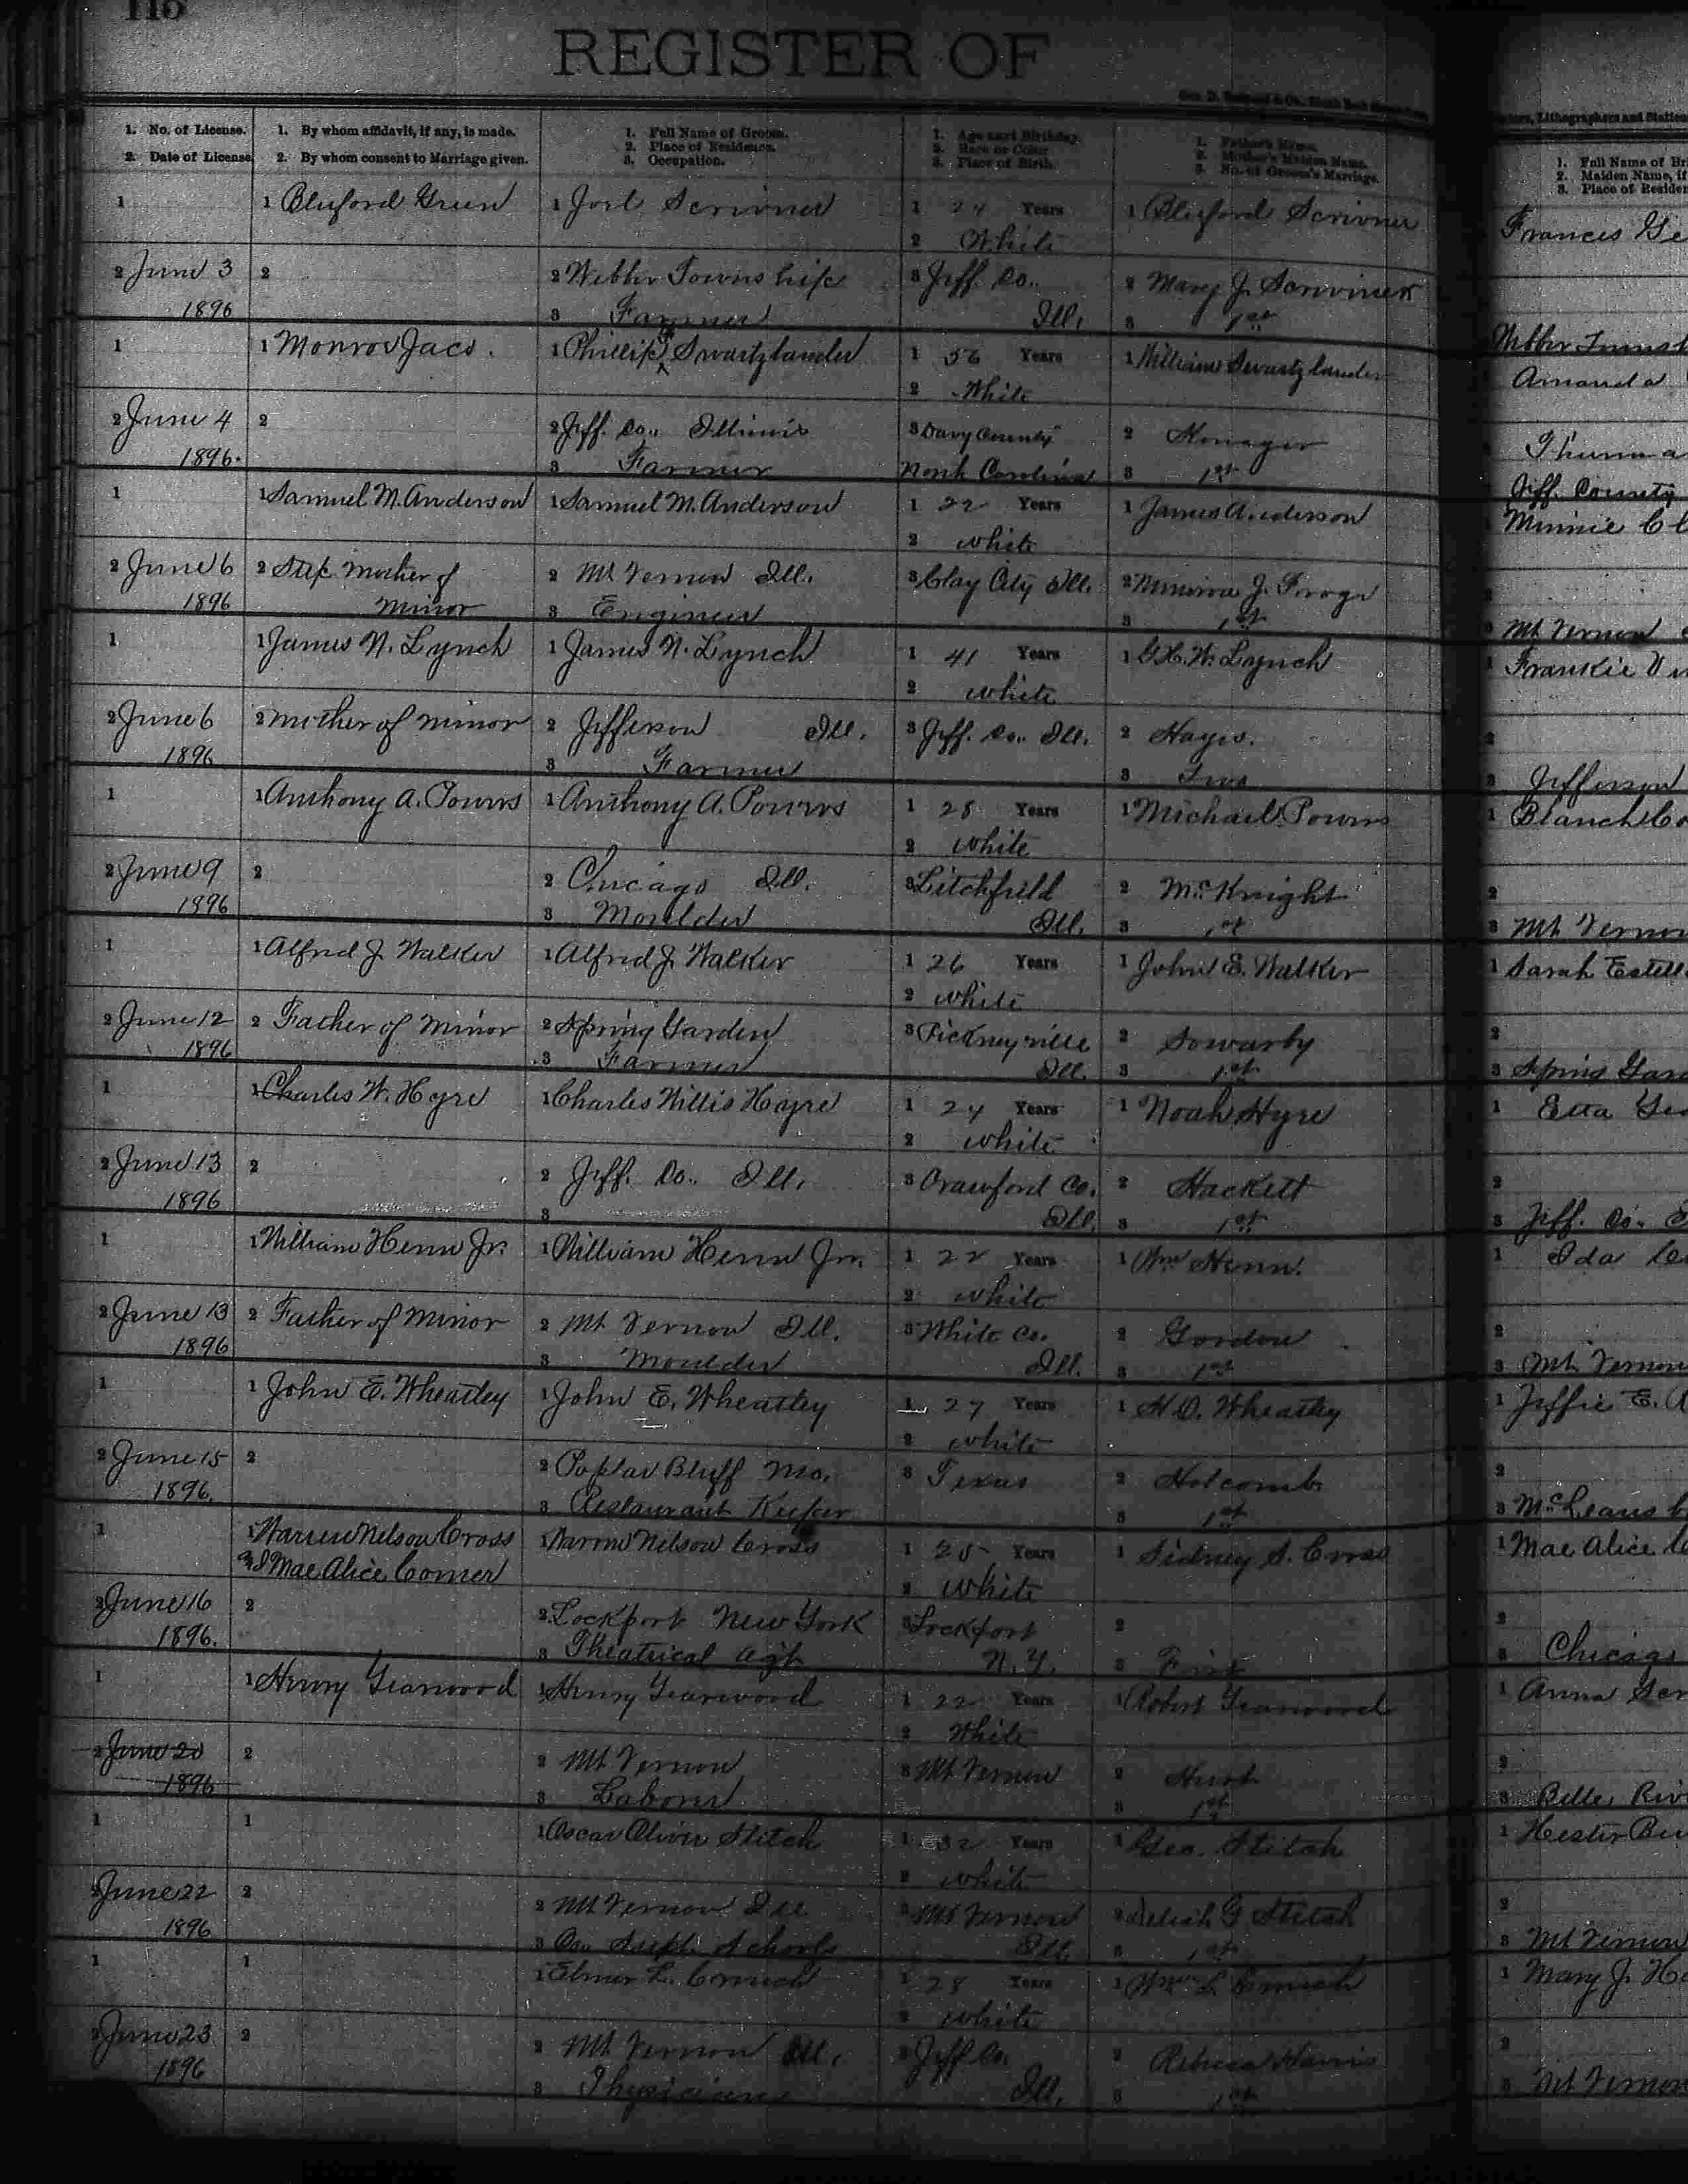 116
REGISTER OF
1. No. of License.
2. Date of License.
1. By whom affidavit, if any, is made.
2. By whom consent to Marriage given.
1. Full Name of Groom.
2. Place of Residence.
3. Occupation.
1. Age next Birthday.
2. Race or Color.
3. Place of Birth.
1. Father's Name.
2. Mother's Maiden Name.
3. No. of Groom's Marriage.
Lithographers and Statio
1. Full Name of Bri
2. Maiden Name, if
3. Place of Residen
1 1 Bluford Green 1 Joel Scrivner 1 24 Years 1 Bluford Scrivner Frances Ge
2 White
2 June 3 2 2 Webber Township 3 Jeff. Co.. 2 Mary J. Scriviner
1896 3 Farmer Ill. 3 1st Webber Towns
1 1 Monroe Jaco. 1 Phillip Swartzlander 1 56 Years 1 William Swartzlander Amanda
2 White
2 June 4 2 2 Jeff. Co.. Illinois 3 Davy County 2
1896. 3 Farmer North Carolina 3 1st Jeff. County
1 1 Samuel M. Anderson 1 Samuel M. Anderson 1 22 Years 1 James Anderson Minnie
2 white
2 June 6 2 Step Mother of 2 Mt Vernon Ill. 3 Clay City Ill. 2
1896 Minor 3 Engineer 3 1st 3 Mt Vernon
1 1 James N. Lynch 1 James N. Lynch 1 41 Years 1 G.H.W. Lynch 1 Frankie
2 white
2 June 6 2 mother of minor 2 Jefferson Ill. 3 Jeff. Co.. Ill. 2 Hayes. 2
1896 3 Farmer 3 Two 3 Jefferson
1 1 Anthony A. Powers 1 Anthony A. Powers 1 28 Years 1 Michael Powers 1 Blanch Co
2 White
2 June 9 2 2 Chicago Ill. 3 Litchfield 2 McKnight 2
1896 3 Moulder Ill. 3 1st 3 Mt Vernon
1 1 Alfred J. Walker 1 Alfred J. Walker 1 26 Years 1 John E. Walker 1 Sarah Estell
2 white
2 June 12 2 Father of Minor 2 Spring Garden 3 Pickneyville 2 Sowarby 2
1896 3 Farmer Ill. 3 1st 3 Spring Gard
1 1 Charles W. Hayre 1 Charles Willis Hayre 1 24 Years 1 Noah Hyre 1 Etta
2 white
2 June 13 2 2 Jeff. Co.. Ill. 3 Crawford Co. 2 Hackett 2
1896 3 Ill. 3 1st 3 Jeff. Co..
1 1 William Henn Jr. 1 William Henn Jr. 1 22 Years 1 Wm Henn. 1 Ida
2 white
2 June 13 2 Father of Minor 2 Mt. Vernon Ill. 3 White Co. 2 Gordon 2
1896 3 Moulder Ill. 3 1st 3 Mt. Vernon
1 1 John E. Wheatley 1 John E. Wheatley 1 27 Years 1 H.O. Wheatley 1 Jeffie E.
2 white
2 June 15 2 2 Poplar Bluff Mo. 3 Texas 2 Holcomb 2
1896. 3 Restaurant Keeper 3 1st 3 McLeans
1 1 Warren Nelson Cross 1 Warren Nelson Cross 1 25 Years 1 Sidney S. Cross 1 Mae Alice
& Mae Alice Comer 2 White
2 June 16 2 2 Lockport New York 3 Lockport 2 2
1896. 3 Theatrical Agt N.Y. 3 First 3 Chicago
1 1 Henry Gearwood 1 Henry Gearwood 1 22 Years 1 Robert Gearwood 1 Anna
2 White
2 June 20 2 2 Mt Vernon 3 Mt Vernon 2 Hurst 2
1896 3 Laborer 3 1st 3 Belle Riv
1 1 1 Oscar Oliver Stitch 1 32 Years 1 Geo. Stitch 1 Hester
2 white
2 June 22 2 2 Mt Vernon Ill 3 Mt Vernon 2 G Stitch 2
1896 3 Co. Supt. Schools Ill. 3 1st 3 Mt Vernon
1 1 1 Elmer L. 1 28 Years 1 Wm L. 1 Mary J.
2 white
2 June 23 2 2 Mt Vernon Ill. 3 Jeff Co. 2 Rebecca Harris 2
1896 3 Physician Ill. 3 1st 3 Mt Vernon